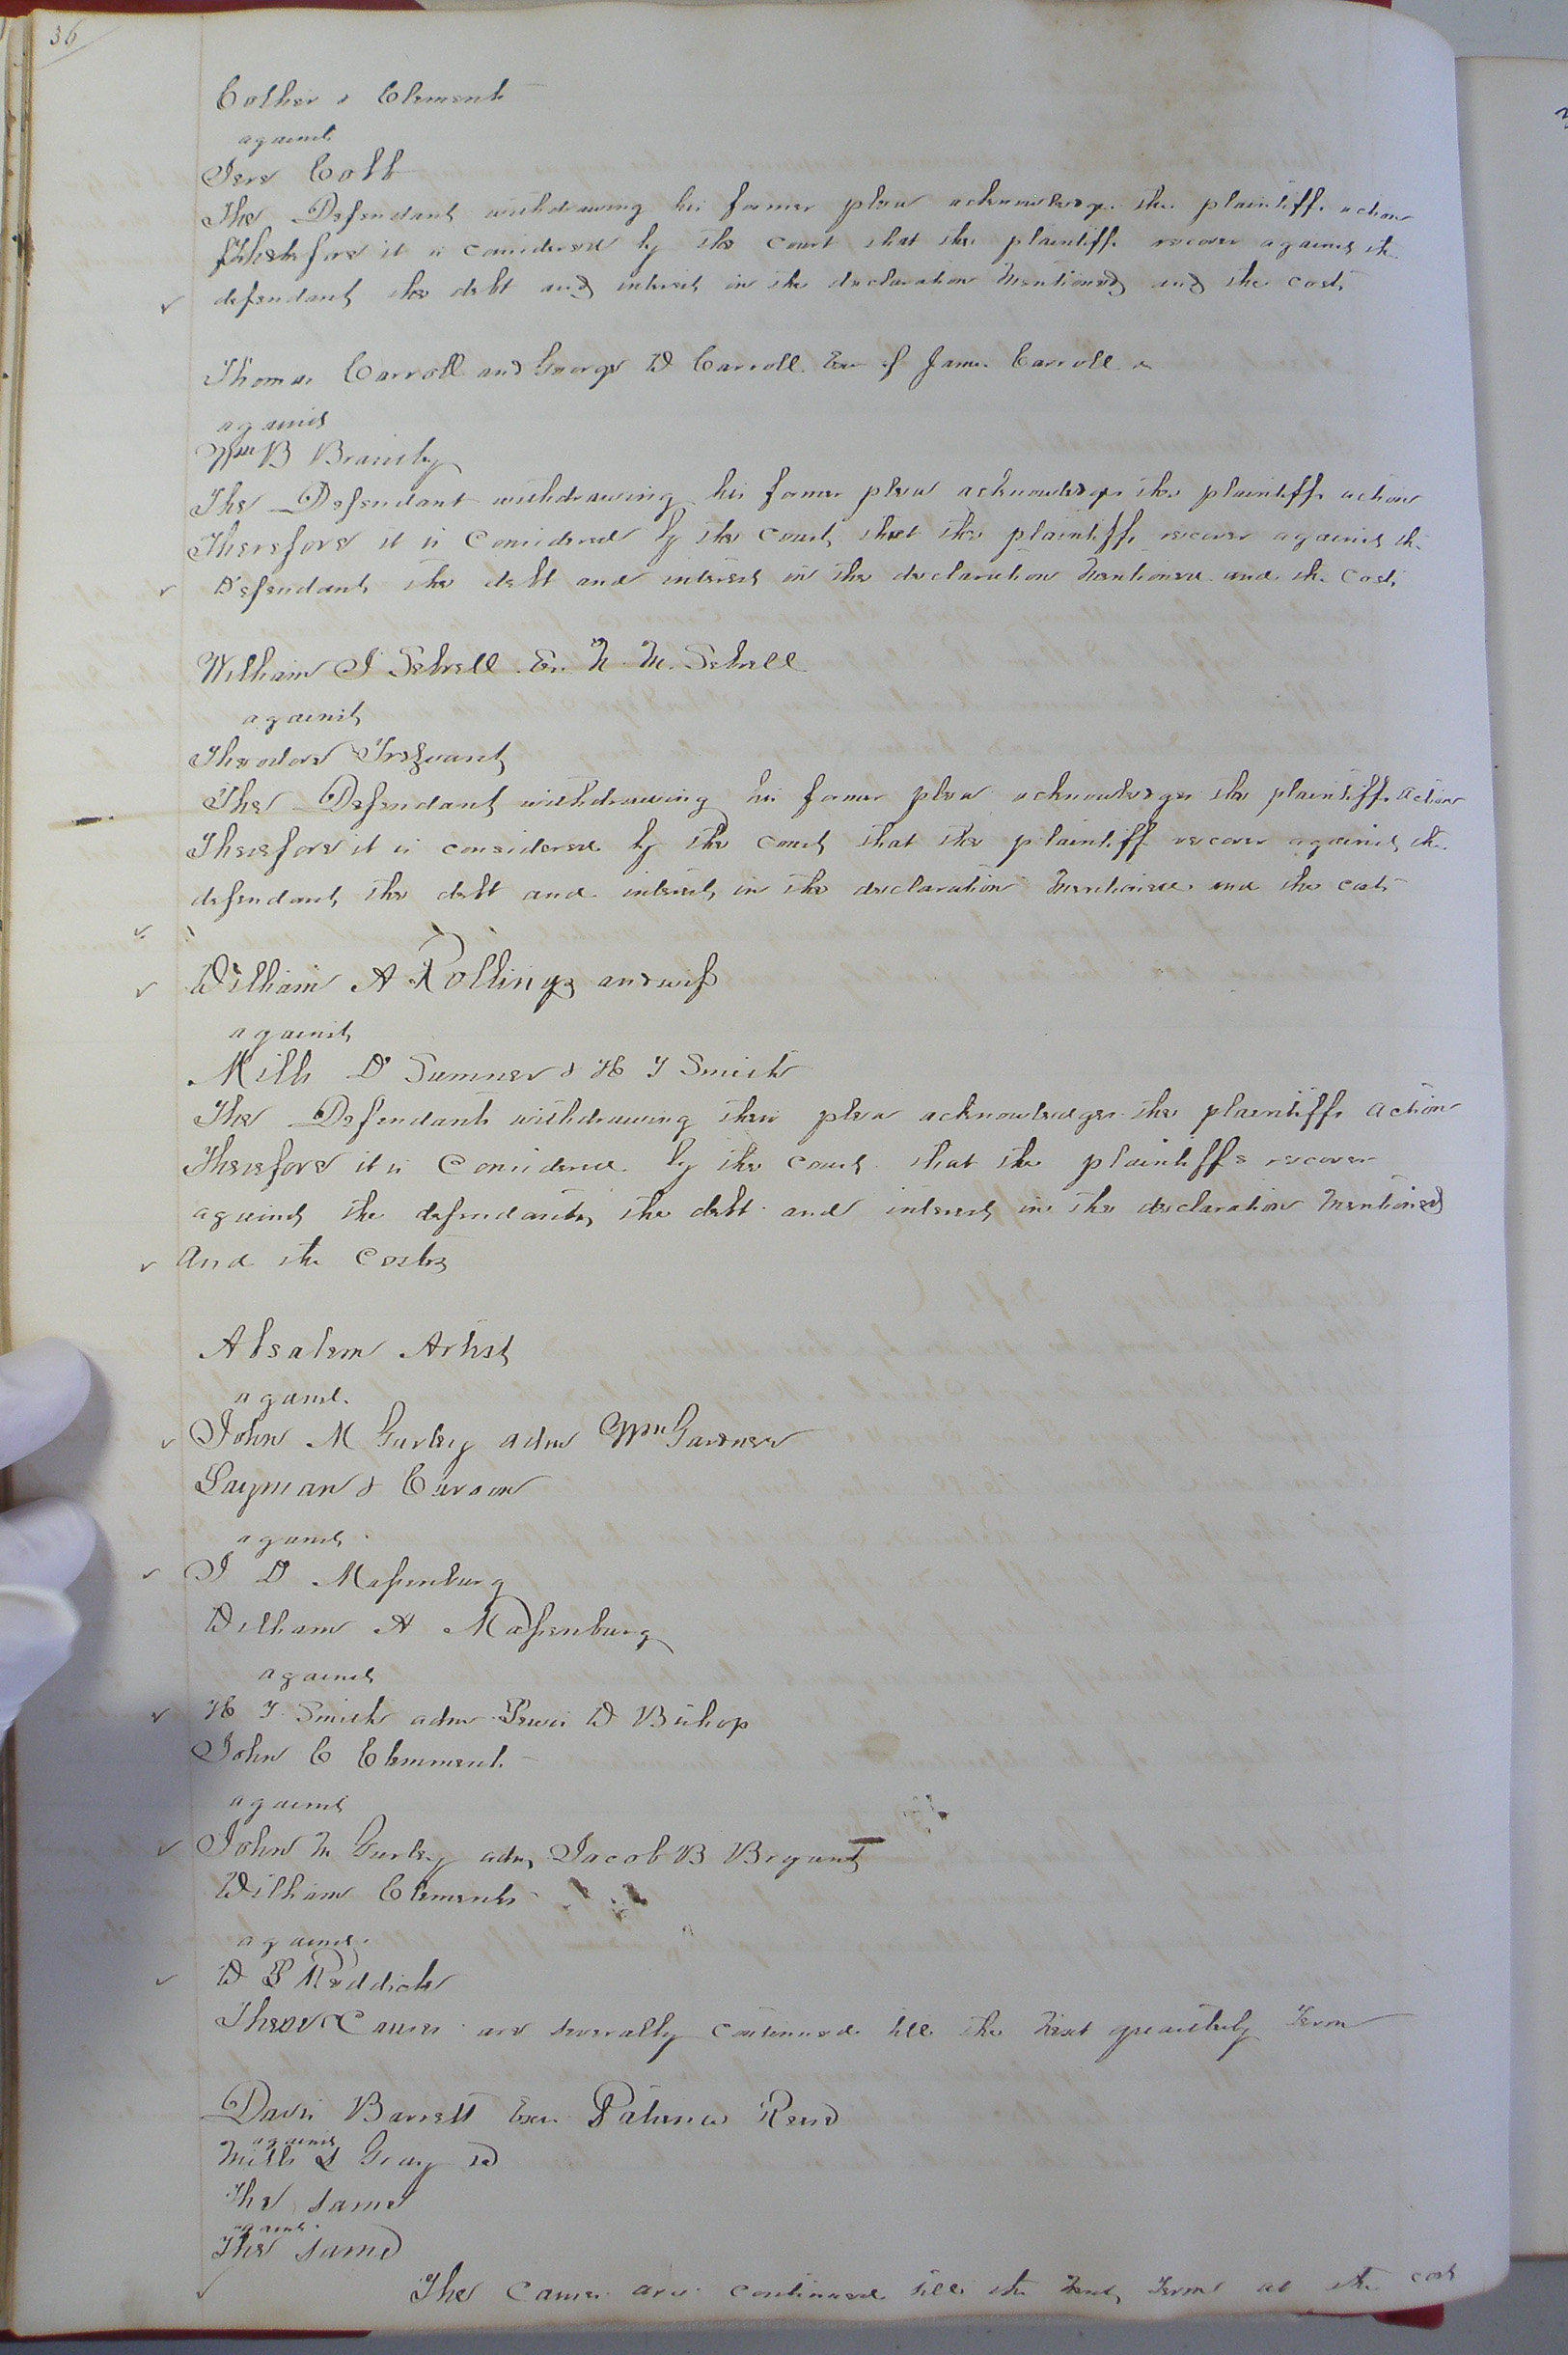 36
Cother & Clements
against
Jere Cobb
The Defendant withdrawing his former plea acknowledge the plaintiffs action
Therefore it is considered by the court that the plaintiffs recover against the
defendant the debt and interest in the declaration mentioned and the costs
Thomas Carroll and George W Carroll Exr of James Carroll
against
Wm B Brantley
The Defendant withdrawing his former plea acknowledges the plaintiffs action
Therefore it is Considered by the court that the plaintiffs recover against the
Defendant the debt and interest in the declaration mentioned and the Costs
William J Sebrell Exr N. M. Sebrell
against
Theodore Trezvant
The Defendant withdrawing his former plea acknowledges the plaintiffs action
Therefore it is considered by the court that the plaintiff recover against the
defendant the debt and interest in the declaration mentioned and the costs
William A Rollings and wife
against
Mills D Sumner & H T Smith
The Defendants withdrawing their plea acknowledges the plaintiffs action
Therefore it is Considered by the court that the plaintiffs recover
against the defendants the debt and interest in the declaration mentioned
And the Costs
Absalem Artist
against
John M Gurley adm Wm Gardner
Layman & Carson
against
J D Massenburg
William A Massenburg
against
H T Smith adm Lewis W Bishop
John C Clemments
against
John M Gurley adm Jacob B Bryant
William Clements
against
W L Reddick
These Causes are severally continued till the next quarterly Term
Davis Barrett Exr Patience Reese
against
Mills L Gray
The same
against
The same
The Causes are continued till the next Term at the cost